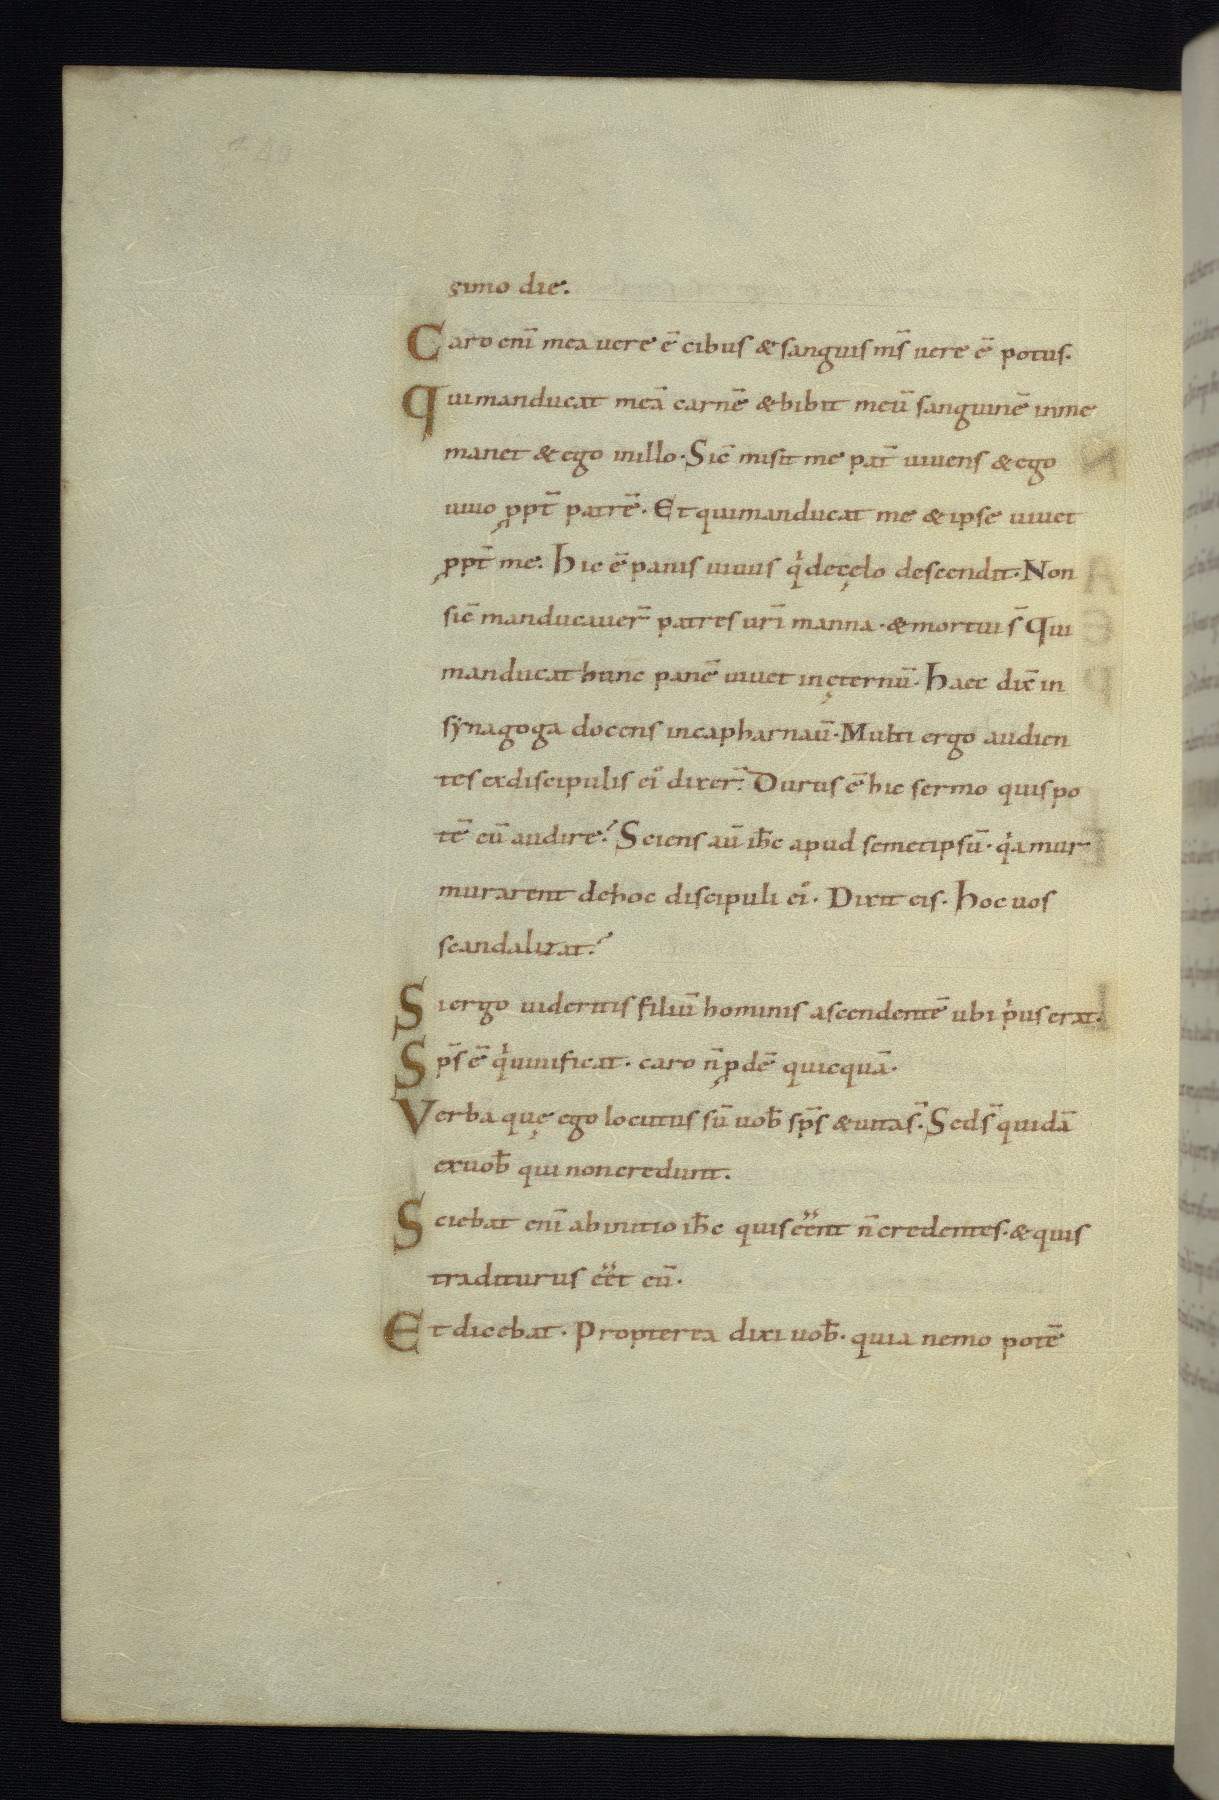 simo die.
Caro enī mea uere ē cibus & sanguis ms̄ uere ē potus.
Qui manducat meā carnē & bibit meū sanguinē in me
manet & ego in illo. Sic̄ misit me pat̄ uiuens & ego
uiuo ꝓpt̄ patrē. Et qui manducat me & ipse uiuet
ꝓpt̄ me. Hic ē panis uiuus qͥ de cęlo descendit. Non
sic̄ manducauer̄ patres ur̄i manna. & mortui s̄ Qui
manducat hunc panē uiuet in ęternū. Haec dix̄ in
synagoga docens in capharnaū. Multi ergo audien
tes ex discipulis ei᾽ dixer̄. Durus ē hic sermo quis po
tē eū audire? Sciens aū ih̄c apud semetipsū. qͥa mur
murarent de hoc discipuli ei᾽. Dixit eis. Hoc uos
scandalizat?
Si ergo uideritis filiū hominis ascendentē ubi pͥus erat.
Sp̄s ē qͥ uiuificat. caro n̄ ꝓdē quicquā.
Verba quę ego locutus sū uob̄ sp̄s & uita s̄. Sed s̄ quidā
ex uob̄ qui non credunt.
Sciebat enī ab initio ih̄c qui s̄ee̅nt n̄ credentes. & quis
traditurus ee̅t eū.
Et dicebat. Propterea dixi uob̄. quia nemo potē